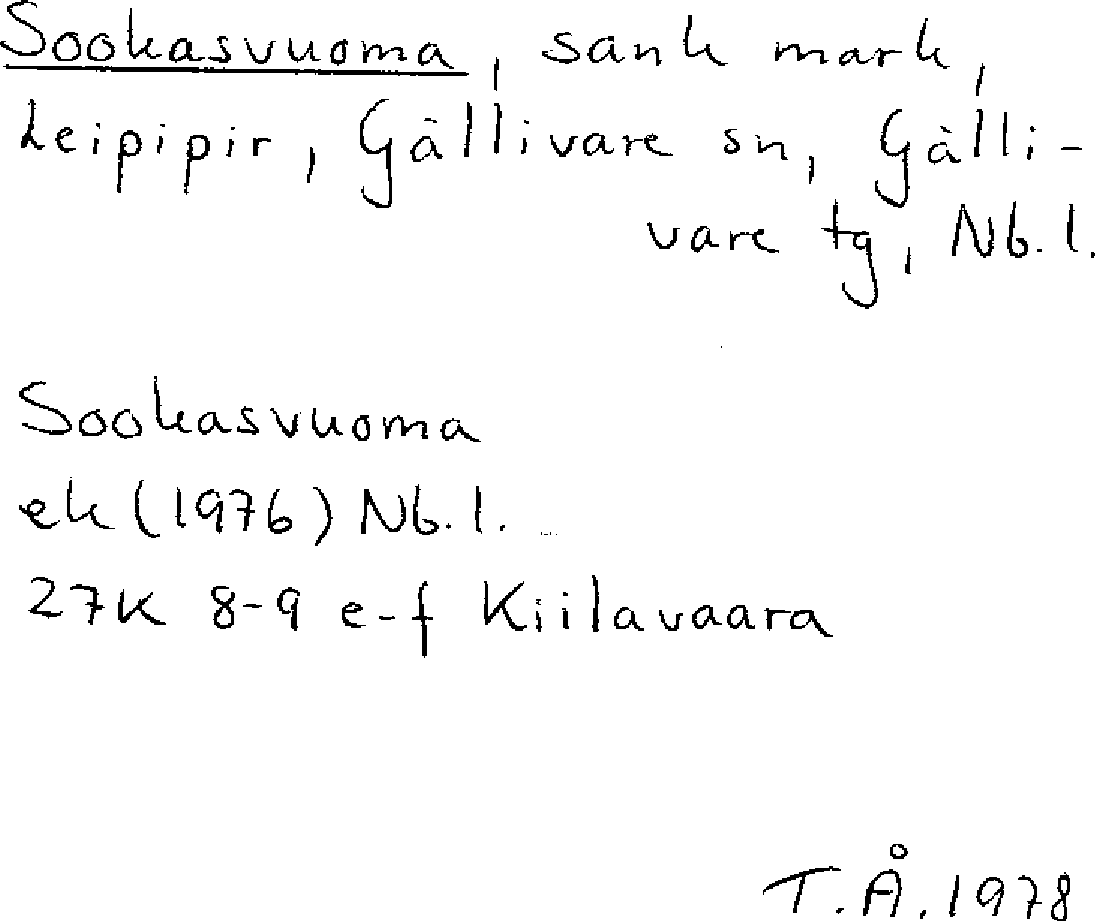 Sookasvuoma, sank mark,
Leipipir, Gällivare sn, Gälli-
vare tg, Nb. l.
Sookasvuoma
ek (1976) Nb. l.
27K 8-9 e-f Kiilavaara
T.Å. 1978